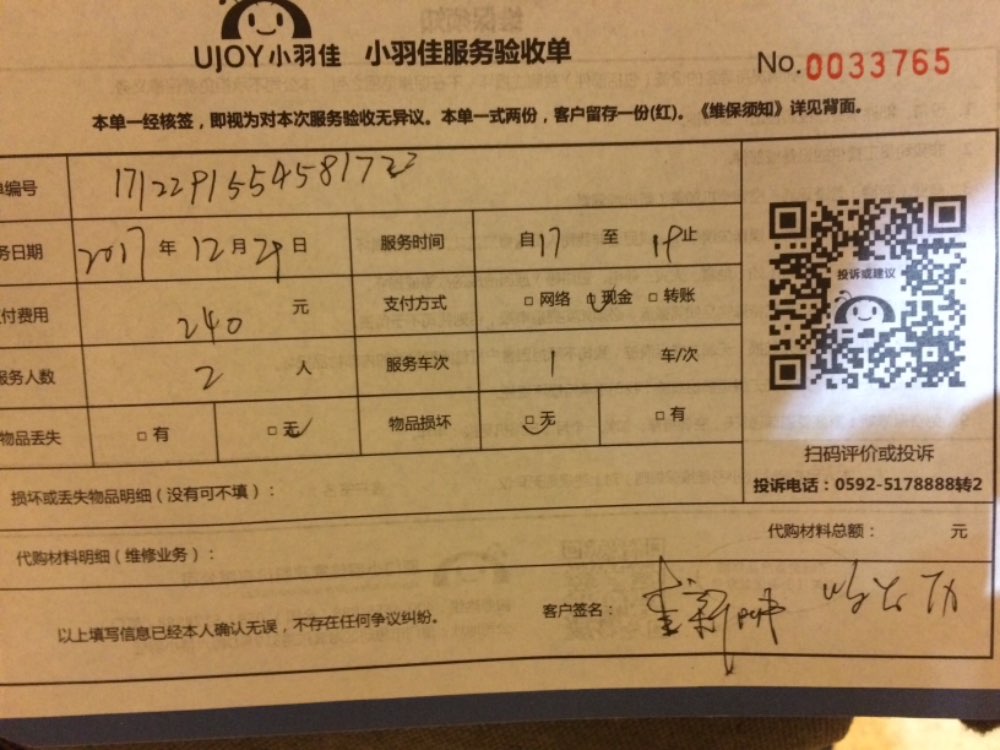 UJOY小羽佳 小羽佳服务验收单
No.0033765
本单一经核签，即视为对本次服务验收无异议。本单一式两份，客户留存一份(红)。《维保须知》详见背面。
单编号 171229155458172
务日期 2017 年 12 月 29 日 服务时间 自 17 至 19 止
付费用 240 元 支付方式 □ 网络 □ 现金 □ 转账
服务人数 2 人 服务车次 1 车/次
物品丢失 □ 有 □ 无 物品损坏 □ 无 □ 有
投诉或建议
扫码评价或投诉
投诉电话：0592-5178888转2
损坏或丢失物品明细（没有可不填）：
代购材料明细（维修业务）： 代购材料总额： 元
以上填写信息已经本人确认无误，不存在任何争议纠纷。 客户签名：